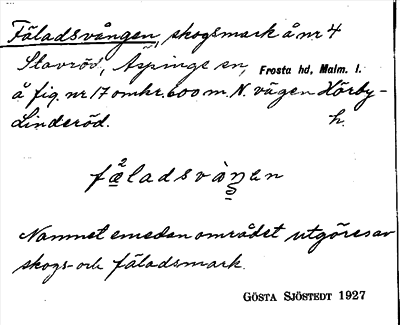 Fäladsvången, skogsmark å nr 4
Slavröd, Äspinge sn, Frosta hd, Malm. l.
å fig. nr 17 omkr. 600 m. N. vägen Hörby-
Linderöd. h.
Namnet emedan området utgöres av
skogs- och fäladsmark.
GÖSTA SJÖSTEDT 1927